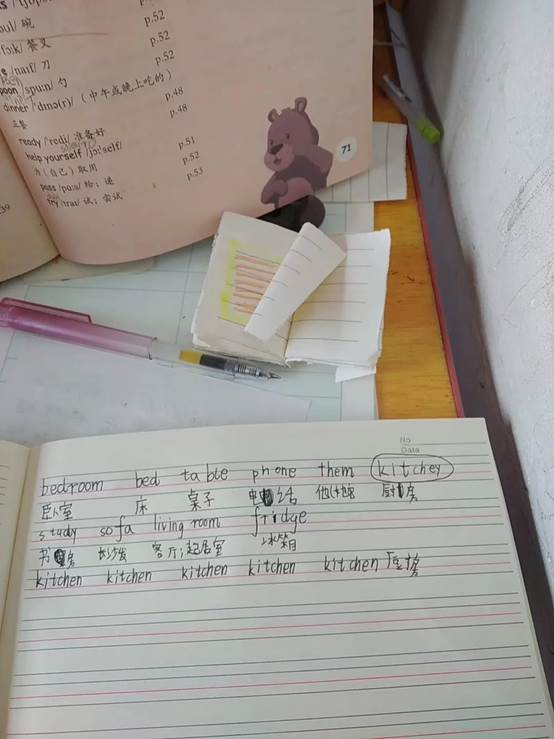 p.52
碗
p.52
/fɔːk/ 餐叉
p.52
/naɪf/ 刀
p.52
spoon /spuːn/ 勺
dinner /ˈdɪnə(r)/ (中午或晚上吃的)
p.48
正餐
p.48
ready /ˈredi/ 准备好
help yourself /jɔːˈself/
p.51
为(自己)取用
p.52
pass /pɑːs/ 给；递
p.53
try /traɪ/ 试；尝试
71
39
No
Date
bedroom bed table phone them kitchey
卧室 床 桌子 电话 他们 厨房
study sofa living room fridge
书房 沙发 客厅；起居室 冰箱
kitchen kitchen kitchen kitchen kitchen